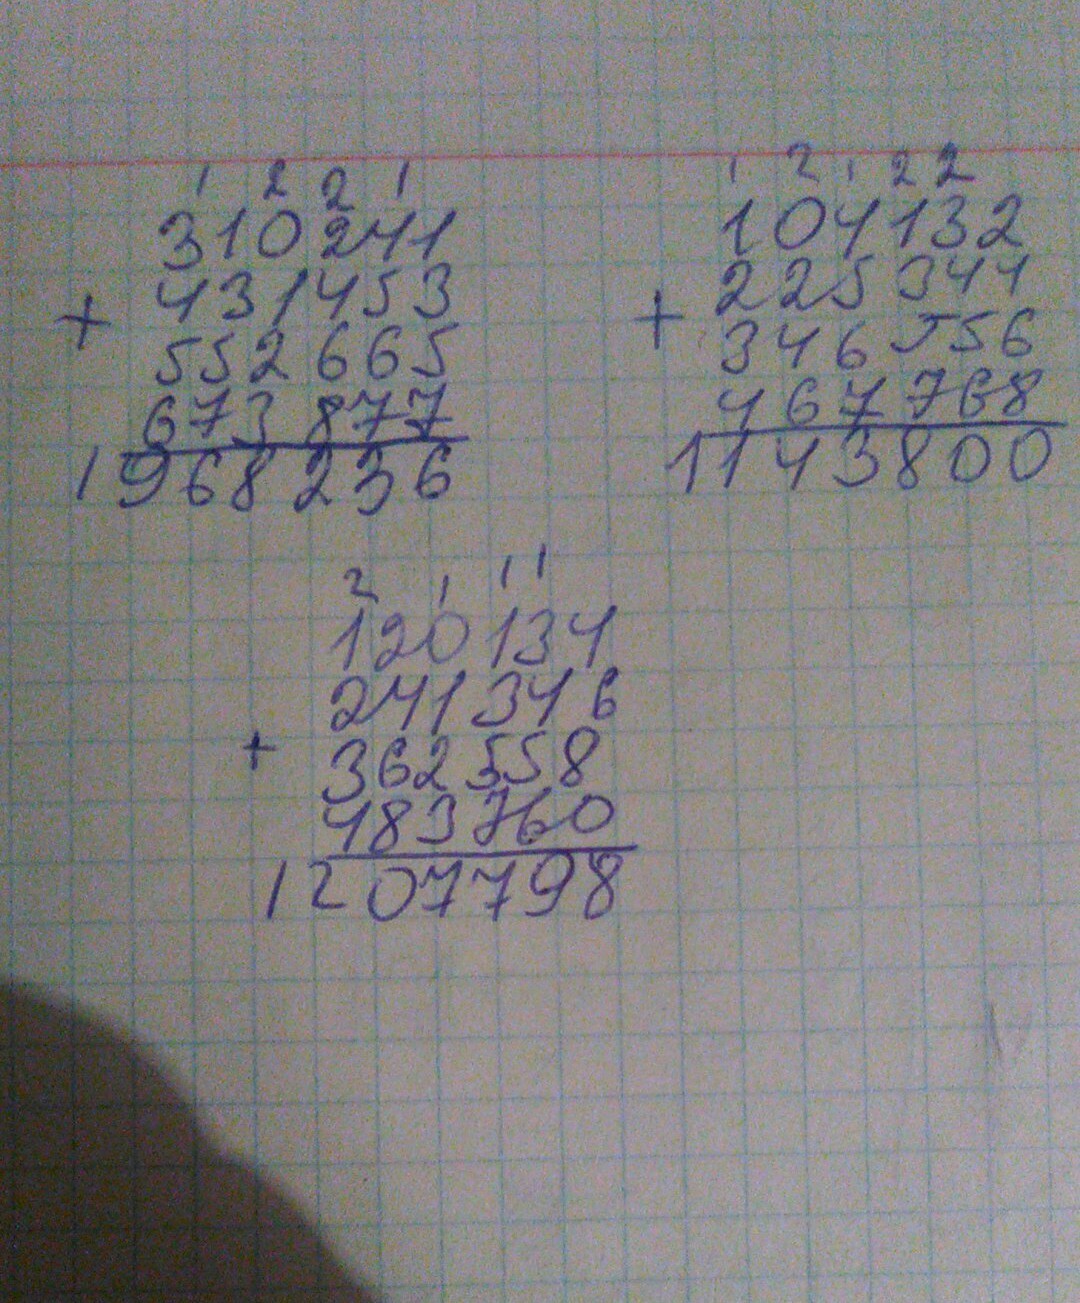 1 2 2 1
310241
+ 431453
552665
673877
1968236
1 2 1 2 2
104132
+ 225344
346556
467768
1143800
2 1 1 1
120134
241346
+ 362558
483760
1207798